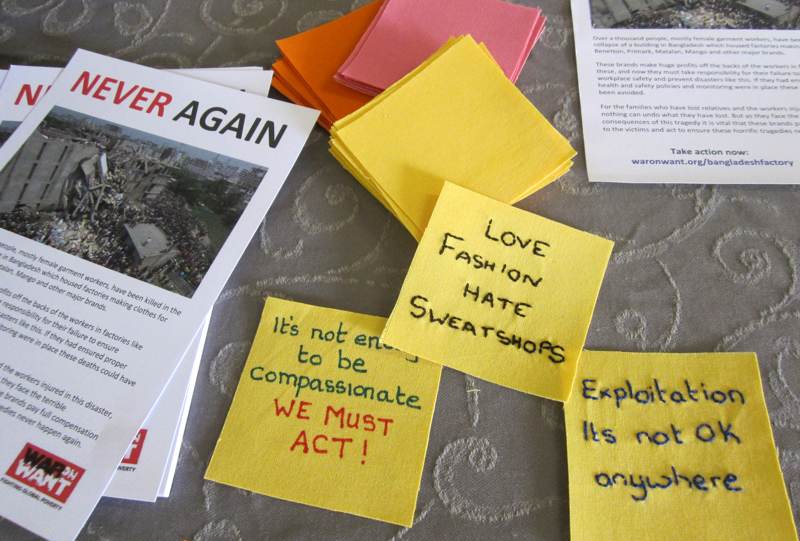 NEVER AGAIN
people, mostly female garment workers, have been killed in the
in Bangladesh which housed factories making clothes for
Matalan, Mango and other major brands.
profits off the backs of the workers in factories like
responsibility for their failure to ensure
disasters like this. If they had ensured proper
monitoring were in place these deaths could have
the workers injured in this disaster,
they face the terrible
brands pay full compensation
never happen again.
WAR ON
WANT
FIGHTING GLOBAL POVERTY
POVERTY
Over a thousand people, mostly female garment workers, have been
collapse of a building in Bangladesh which housed factories making
Benetton, Primark, Matalan, Mango and other major brands.
These brands make huge profits off the backs of the workers in
these, and now they must take responsibility for their failure to
workplace safety and prevent disasters like this. If they had
health and safety policies and monitoring were in place these
been avoided.
For the families who have lost relatives and the workers
nothing can undo what they have lost. But as they face the
consequences of this tragedy it is vital that these brands
to the victims and act to ensure these horrific tragedies
Take action now:
waronwant.org/bangladeshfactory
LOVE
FASHION
HATE
SWEATSHOPS
It's not
to be
compassionate
WE MUST
ACT!
Exploitation
Its not OK
anywhere